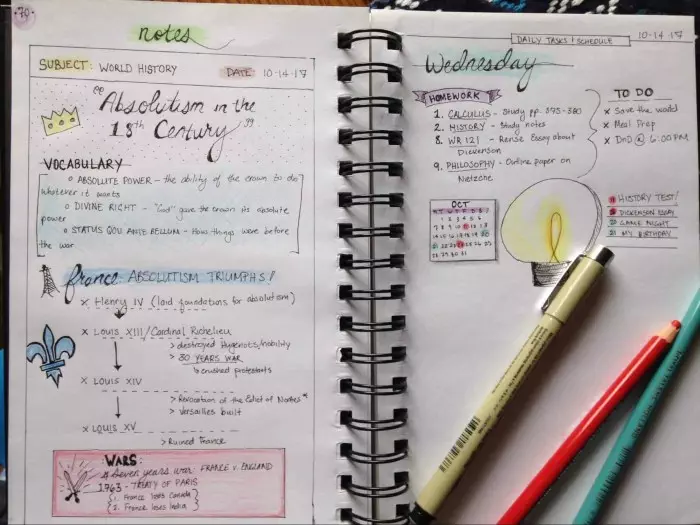 70
notes
SUBJECT: WORLD HISTORY DATE: 10-14-17
"Absolutism in the
18th Century"
VOCABULARY
ABSOLUTE POWER - the ability of the crown to do
whatever it wants
DIVINE RIGHT - "God" gave the crown its absolute
power
STATUS QOU ANTE BELLUM - How things were before
the war
france: ABSOLUTISM TRIUMPHS!
x Henry IV (laid foundations for absolutism)
x Louis XIII/Cardinal Richelieu
> destroyed Hugenots/nobility
> 30 YEARS WAR
↳ crushed protestants
x LOUIS XIV
> Revocation of the Edict of Nantes
> Versailles built
x LOUIS XV
> Ruined France
WARS:
Seven years war: FRANCE V. ENGLAND
1763 - TREATY OF PARIS
1. France loses Canada
2. France loses India
DAILY TASKS / SCHEDULE 10-14-17
Wednesday
HOMEWORK
1. CALCULUS - Study pp. 375-380
2. HISTORY - Study notes
8. WR 121 - Revise Essay about
Dickenson
9. PHILOSOPHY - Outline paper on
Nietzche
TO DO
x Save the world
x Meal Prep
x DnD @ 6:00 PM
OCT
HISTORY TEST!
DICKENSON ESSAY
GAME NIGHT
MY BIRTHDAY